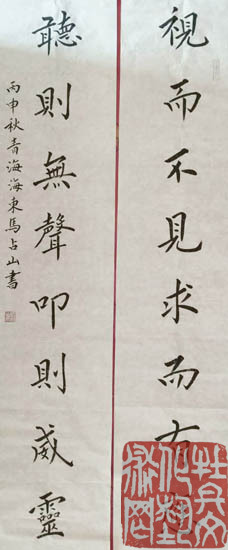 視而不見求而有
聽則無聲叩則威靈
丙申秋青海海東馬占山書